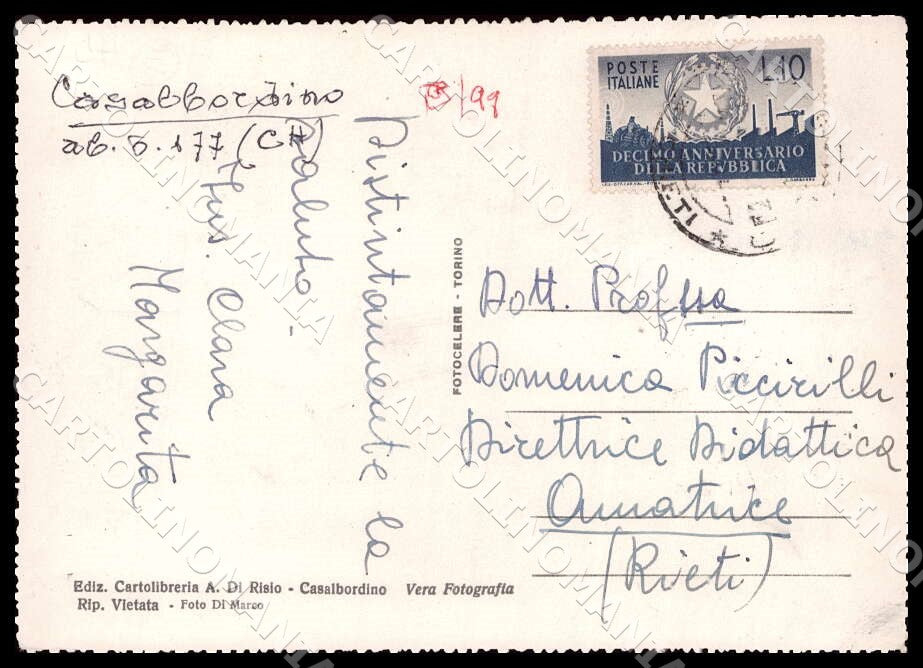 Casalbordino
ab. 5.177 (CH)
B/99
Distintamente la
saluto -
Ins. Clara
Margarita
POSTE
ITALIANE
L.10
DECIMO ANNIVERSARIO
DELLA REPVBBLICA
FOTOCELERE - TORINO
Dott. Prof.ssa
Domenica Piccirilli
Direttrice Didattica
Amatrice
(Rieti)
Ediz. Cartolibreria A. Di Risio - Casalbordino Vera Fotografia
Rip. Vietata - Foto Di Marco
CARTOLINOMANIA